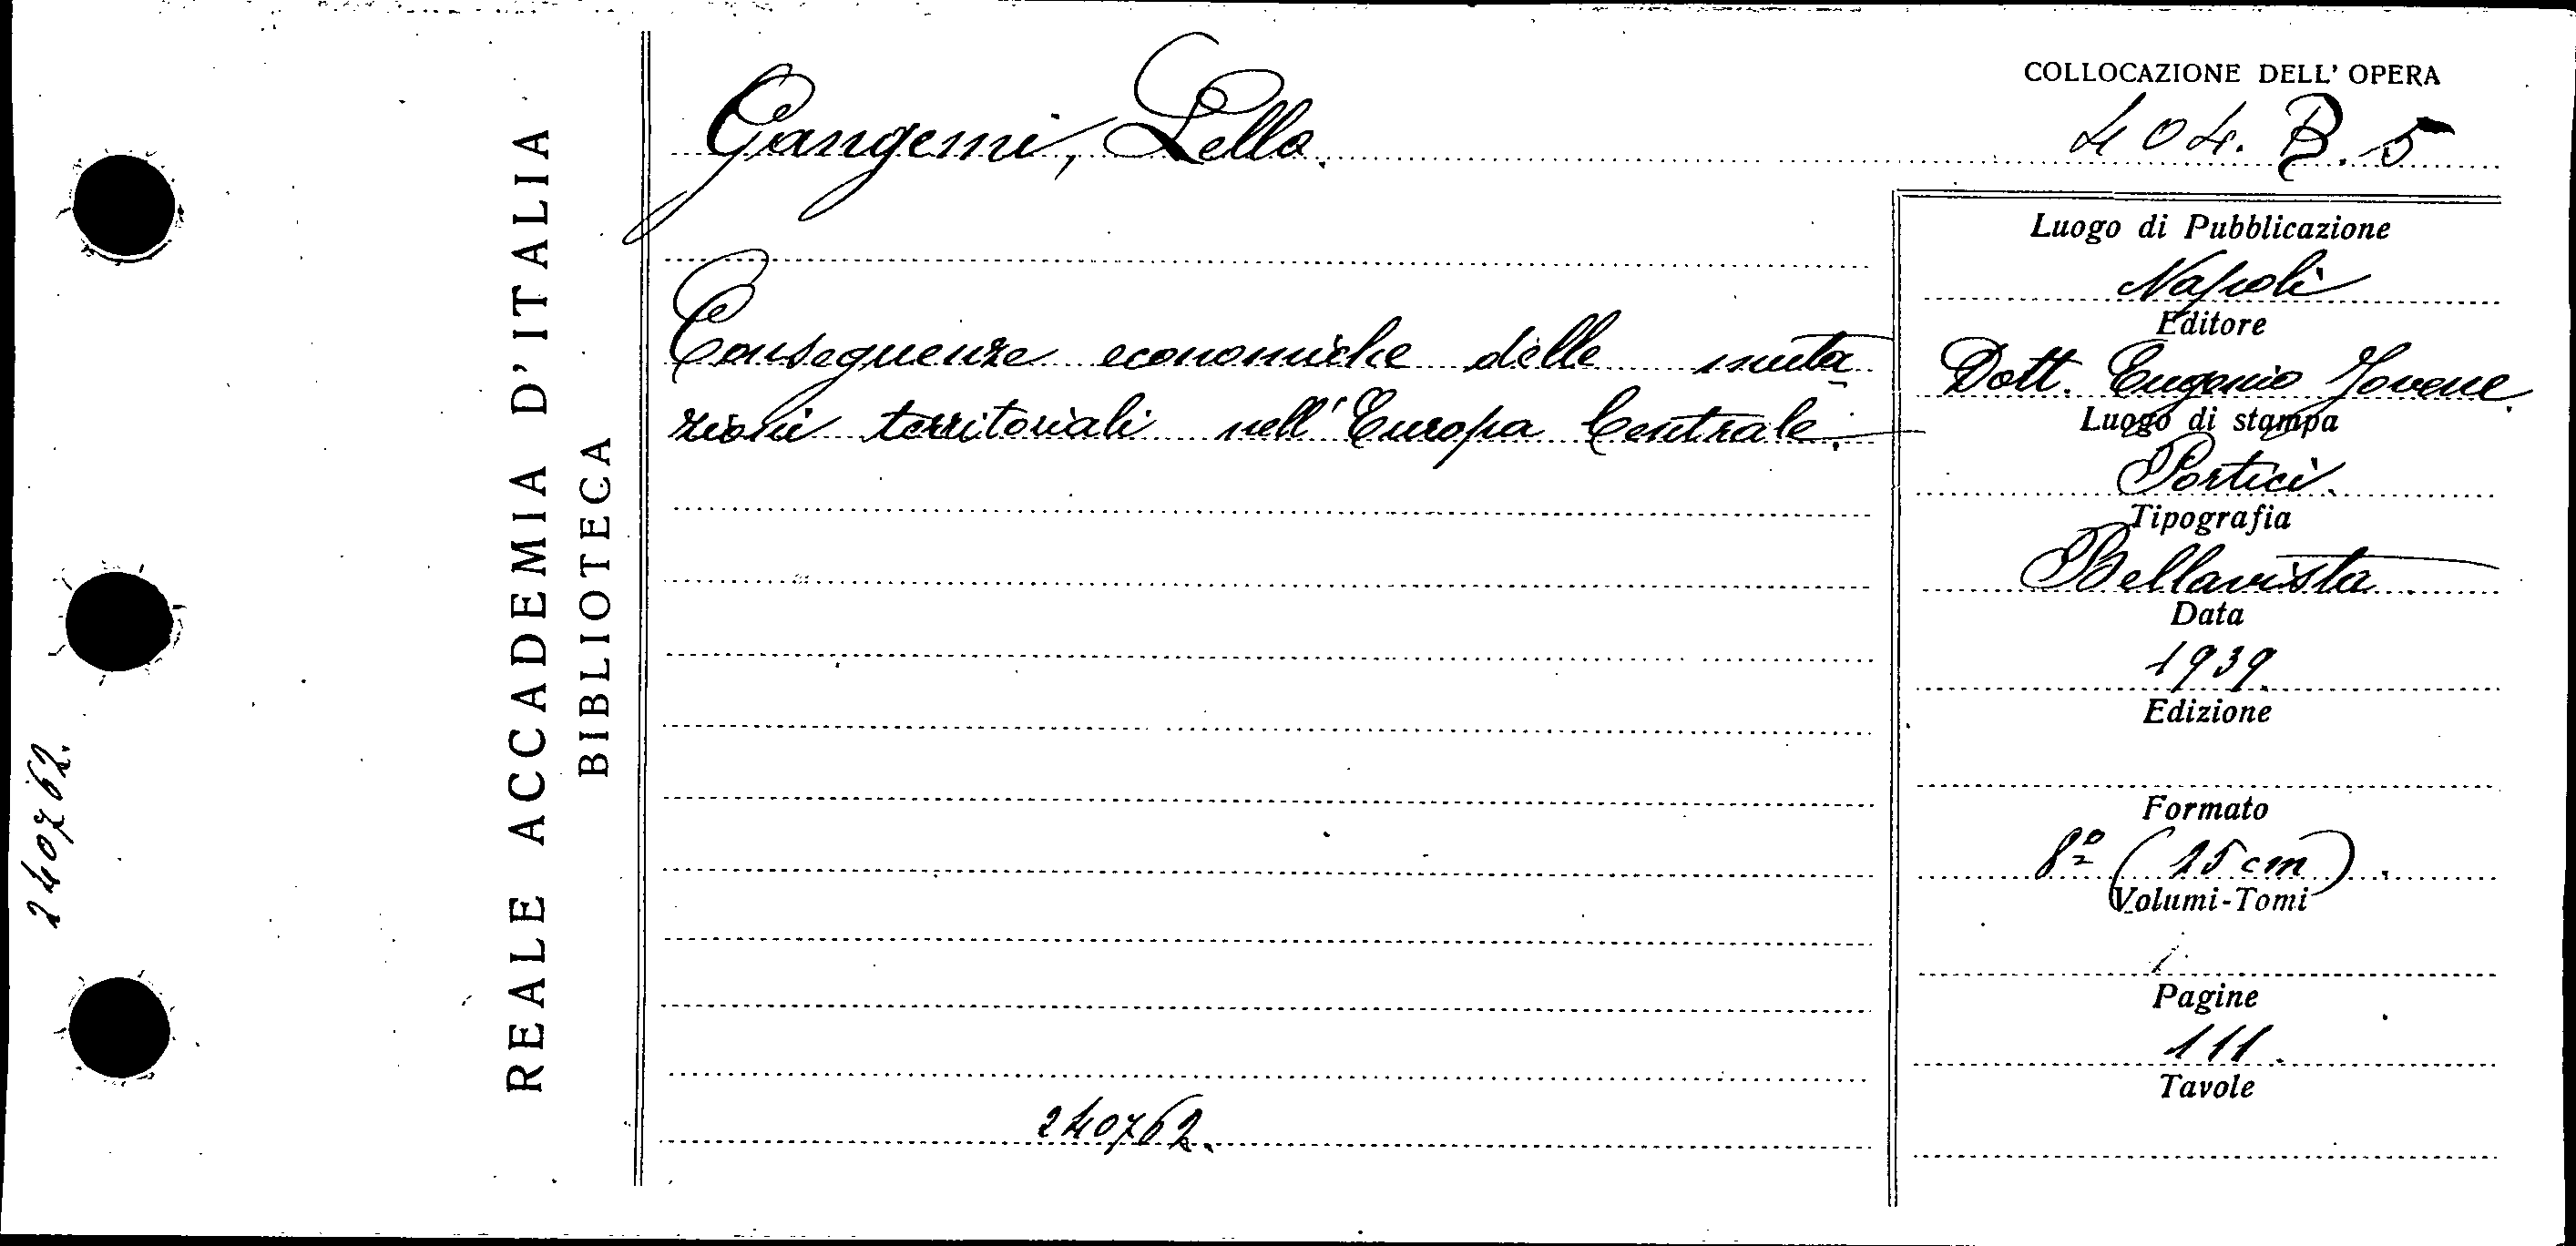 COLLOCAZIONE DELL' OPERA
Gangemi, Lello.
404. B. 5
REALE ACCADEMIA D'ITALIA
BIBLIOTECA
Conseguenze economiche delle muta
zioni territoriali nell'Europa Centrale.
240762.
Luogo di Pubblicazione
Napoli
Editore
Dott. Eugenio Jovene.
Luogo di stampa
Portici.
Tipografia
Bellavista
Data
1939.
Edizione
Formato
8º (25 cm).
Volumi-Tomi
Pagine
111.
Tavole
240762.